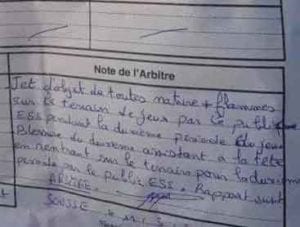 Note de l'Arbitre
Jet d'objet de toutes nature + flammes
sur le terrain de jeu par le public
ESS pendant la duxième période du jeu
Blessure du duxième assistant à la tête
en rentrant sur le terrain pour la duxième
période par le public ESS. Rapport suit
SOUSSE le